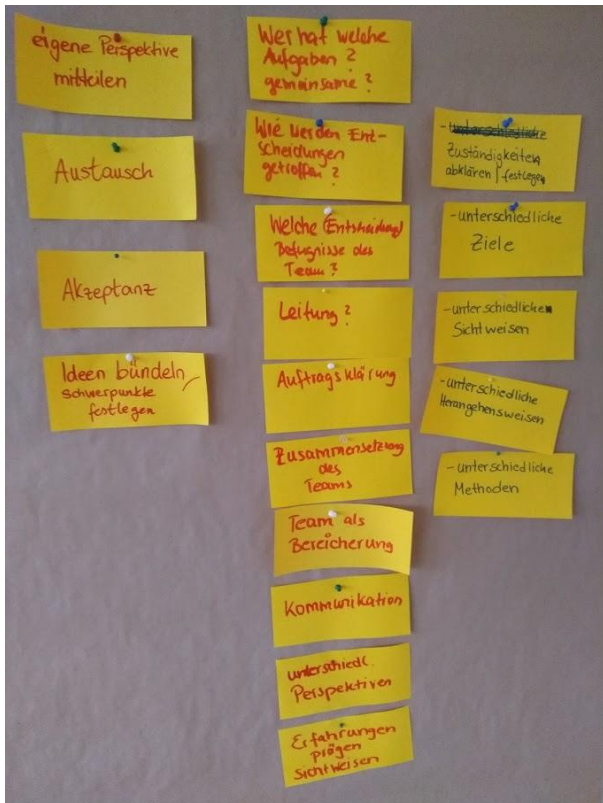 eigene Perspektive
mitteilen
Austausch
Akzeptanz
Ideen bündeln
Schwerpunkte
festlegen
Wer hat welche
Aufgaben?
gemeinsame?
Wie werden Ent-
scheidungen
getroffen?
Welche (Entscheidung)
Befugnisse des
Team?
Leitung?
Auftragsklärung
Zusammensetzung
des
Teams
Team als
Bereicherung
Kommunikation
unterschiedl.
Perspektiven
Erfahrungen
prägen
Sichtweisen
- unterschiedliche
Zuständigkeiten
abklären / festlegen
- unterschiedliche
Ziele
- unterschiedlichen
Sichtweisen
- unterschiedliche
Herangehensweisen
- unterschiedliche
Methoden